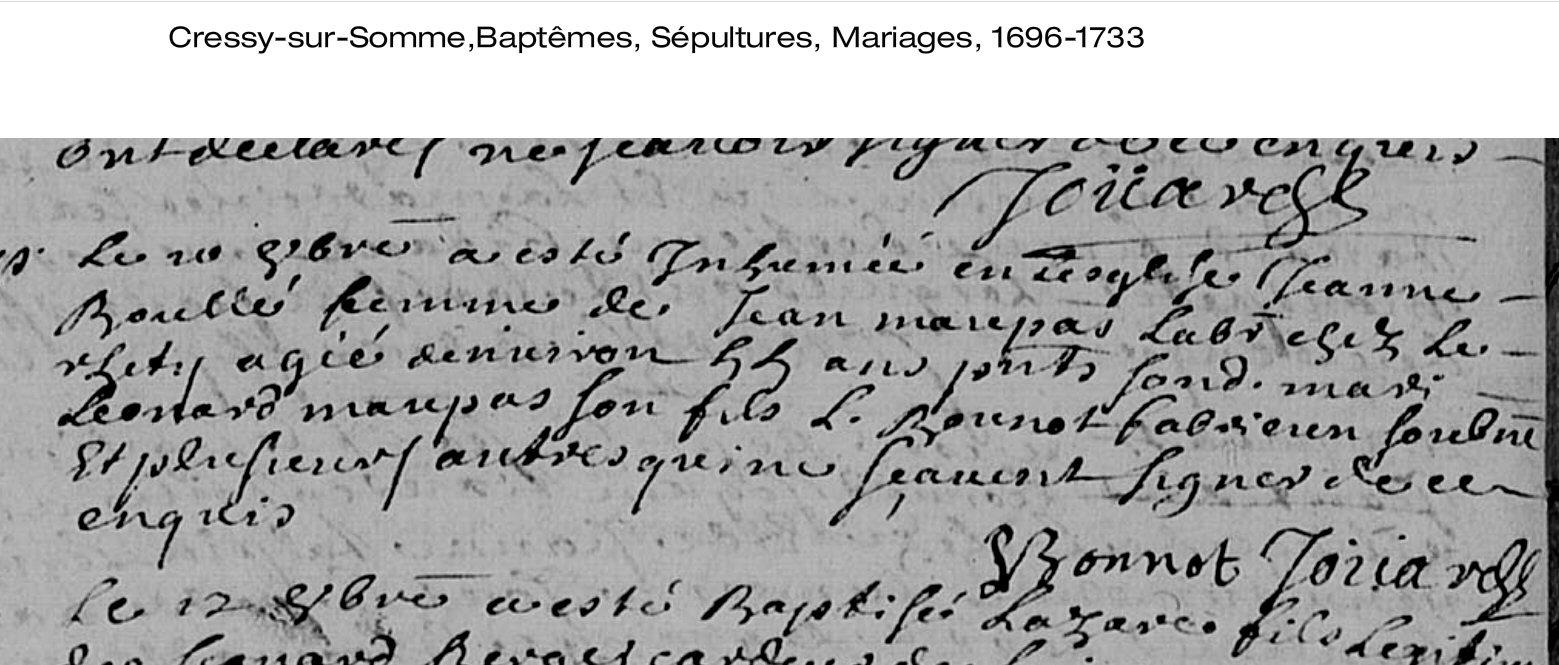 Cressy-sur-Somme,Baptêmes, Sépultures, Mariages, 1696-1733
ont declarés ne scavoir signer de ce enquis
Joüard
Le 10 9bre a esté Inhumée en Lesglise Jeanne
femme de Jean maupas Labr chez Le
agéé denuiron 55 ans pnts sond. mari
Leonard maupas son fils L. Bonnot fabricien soubné
Et plusieurs autres qui ne scavent signer de ce
enquis
Bonnot Joüard
Le 12 9bre a esté Baptisé Lazare fils Legitim